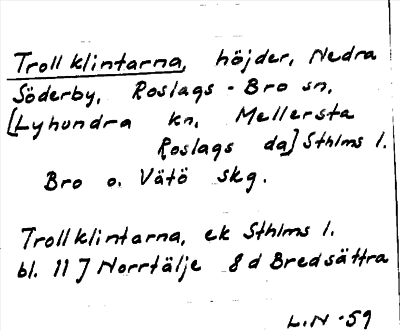 Trollklintarna, höjder, Nedra
Söderby, Roslags-Bro sn,
[Lyhundra kn, Mellersta
Roslags da] Sthlms l.
Bro o. Vätö skg.
Trollklintarna, ek Sthlms l.
bl. 11 J Norrtälje 8 d Bredsättra
L.N -59